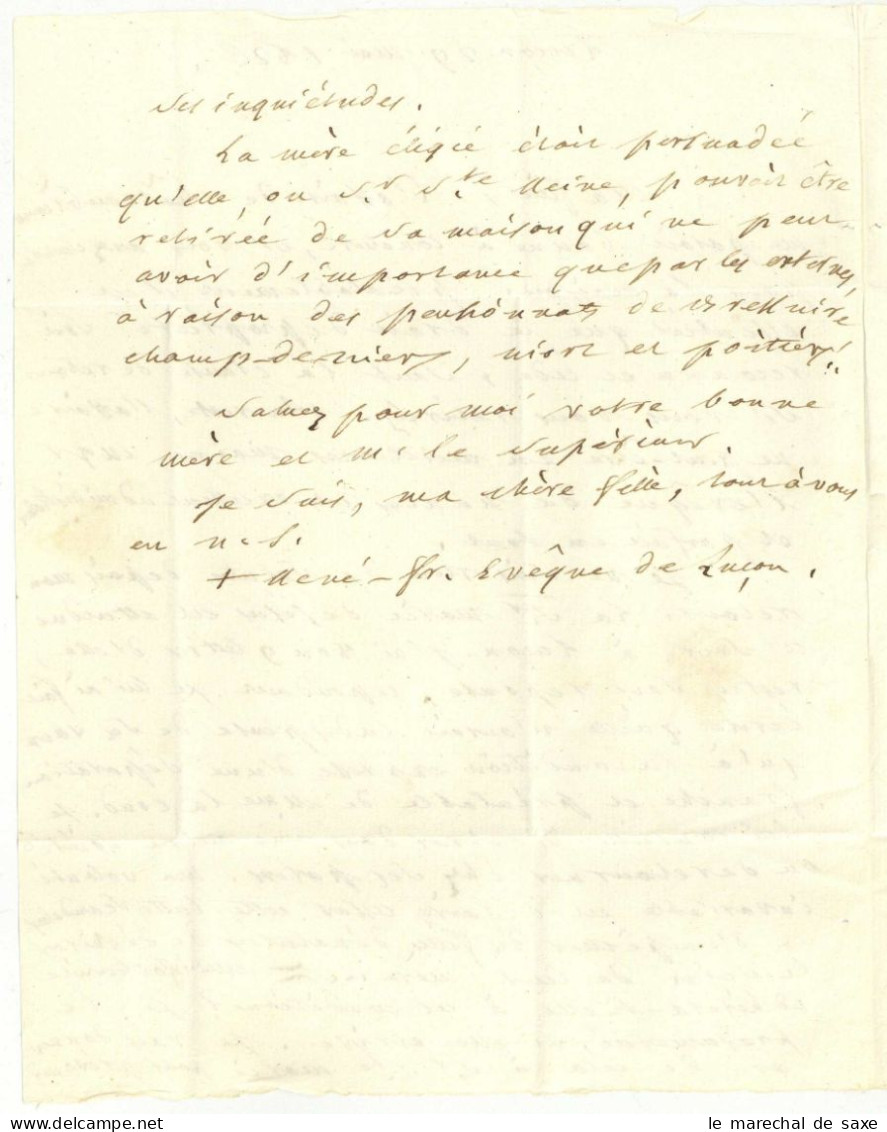 ses inquiétudes.
La mère éligié étoit persuadée
qu'elle, ou Sr Ste Reine, pouvoit être
retirée de sa maison qui ne peut
avoir d'importance que par les externes,
à raison des pensionnats de Bressuire
champ-deniers, niort et poitiers!.
Saluez pour moi votre bonne
mère et mr le Supérieur.
je suis, ma chère fille, tout à vous
en n.s.
+ René-fr. Evêque de Luçon.
le marechal de saxe